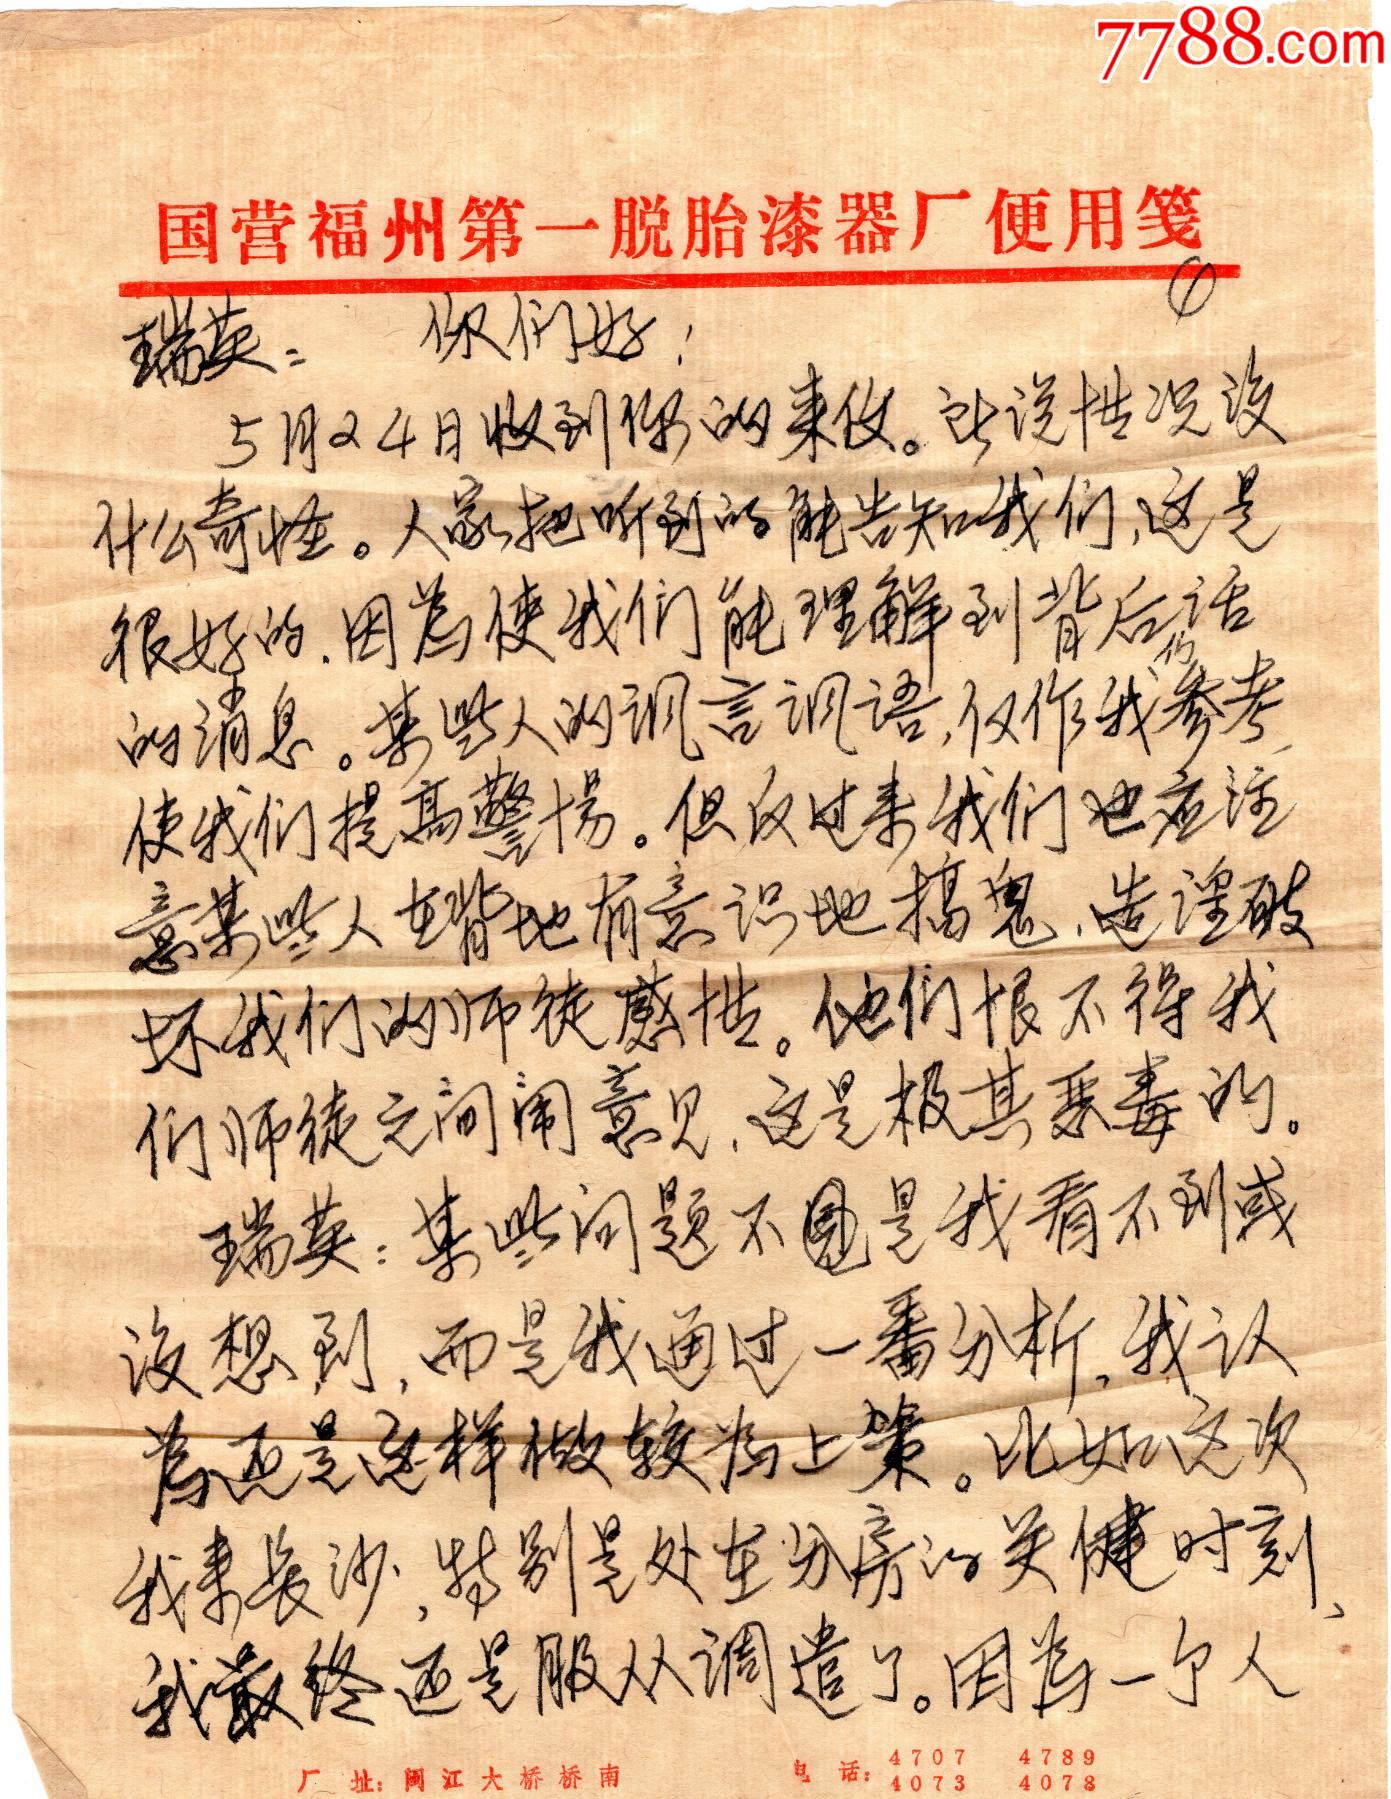 7788.com
国营福州第一脱胎漆器厂便用笺
①
瑞英：你们好！
5月24日收到你的来信。所说情况没
什么奇怪。人家把听到的能告知我们，这是
很好的，因为使我们能理解到背后话
的消息。某些人的讽言讽语，仅作我们参考，
使我们提高警惕。但反过来我们也应注
意某些人在背地有意识地搞鬼，造谣破
坏我们的师徒感情。他们恨不得我
们师徒之间闹意见，这是极其恶毒的。
瑞英：某些问题不是我看不到或
没想到，而是我通过一番分析，我认
为还是这样做较为上策。比如这次
我来长沙，特别是处在分房的关健时刻，
我最终还是服从调遣了。因为一个人
厂址：闽江大桥桥南 电话：4707 4789
4073 4078